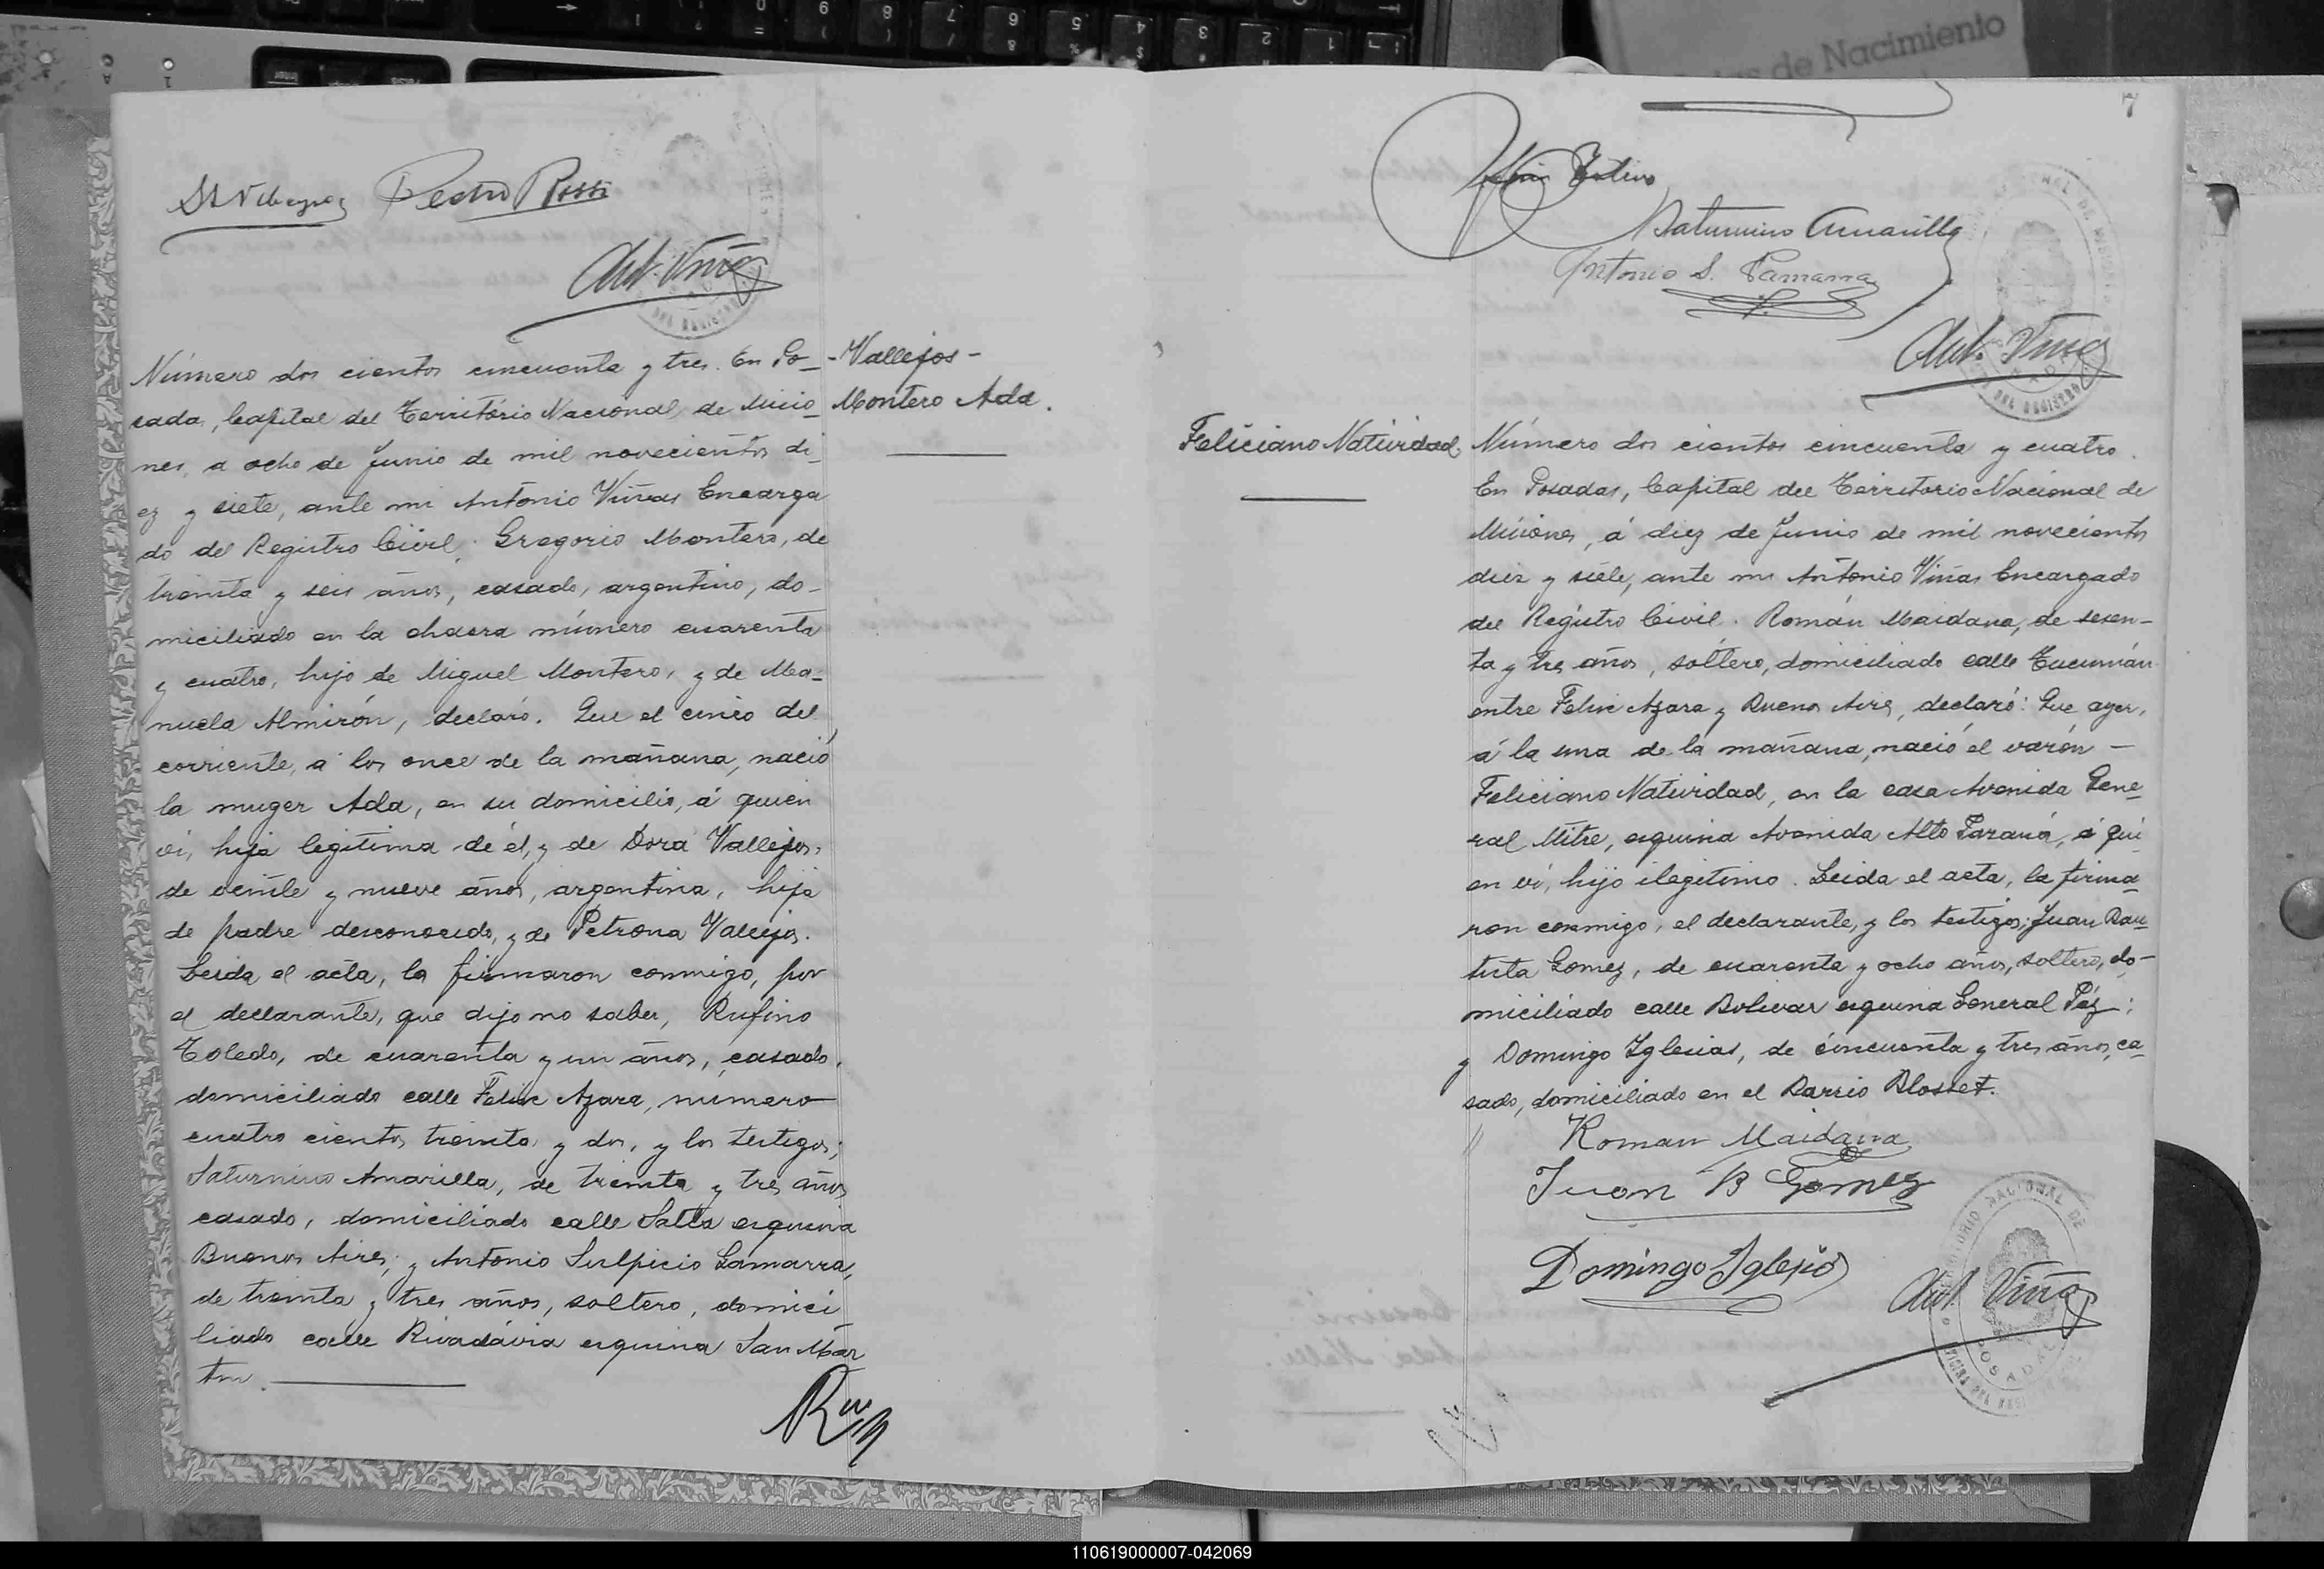 de Nacimiento
7
Pedro Rossi
Ant. Viñas
Número dos cientos cincuenta y tres. En Po-
sadas, Capital del Territorio Nacional de Misio-
nes, a ocho de Junio de mil novecientos di-
ez y siete, ante mi Antonio Viñas Encarga
do del Registro Civil. Gregorio Montero, de
treinta y seis años, casado, argentino, do-
miciliado en la chacra número cuarenta
y cuatro, hijo de Miguel Montero, y de Ma-
nuela Almirón, declaró. Que el cinco del
corriente, á las once de la mañana, nació
la muger Ada, en su domicilio, á quien
ví, hija legitima de él, y de Dora Vallejos,
de veinte y nueve años, argentina, hija
de padre desconocido, y de Petrona Vallejos.
Leida el acta, la firmaron conmigo, por
el declarante, que dijo no saber, Rufino
Toledo, de cuarenta y un años, casado,
domiciliado calle Felix Azara, número
cuatro cientos treinta y dos, y los testigos;
Saturnino Amarilla, de treinta y tres años
casado, domiciliado calle Salta esquina
Buenos Aires; y Antonio Sulpicio Gamarra,
de treinta y tres años, soltero, domici
liado calle Rivadávia esquina San Mar
tin.
-Vallejos-
Montero Ada.
Saturnino Amarilla
Antonio S. Gamarra
Ant. Viñas
Feliciano Natividad
Número dos cientos cincuenta y cuatro.
En Posadas, Capital del Territorio Nacional de
Misiones, á diez de Junio de mil novecientos
diez y siete, ante mi Antonio Viñas Encargado
del Registro Civil. Román Maidana, de sesen-
ta y tres años, soltero, domiciliado calle Tucumán
entre Felix Azara y Buenos Aires, declaró: Que ayer,
á la una de la mañana, nació el varón -
Feliciano Natividad, en la casa Avenida Gene-
ral Mitre, esquina Avenida Alto Paraná, á qui
en ví, hijo ilegitimo. Leida el acta, la firma-
ron conmigo, el declarante, y los testigos; Juan Bau
tista Gomez, de cuarenta y ocho años, soltero, do-
miciliado calle Bolivar esquina General Páz;
y Domingo Iglesias, de cincuenta y tres años, ca-
sado, domiciliado en el Barrio Blosset.
Roman Maidana
Juan B Gomez
Domingo Iglesias
Ant. Viñas
TERRITORIO NACIONAL DE
POSADAS
110619000007-042069